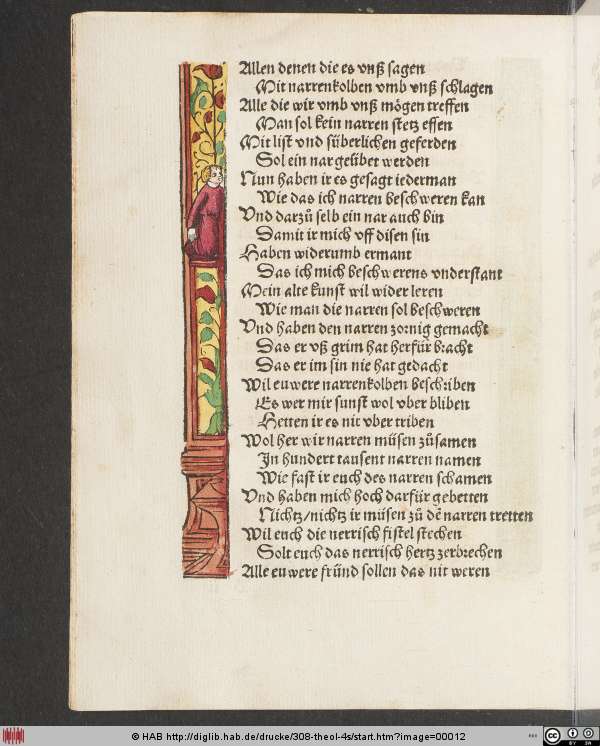 Allen denen die es vnß sagen
Mit narrenkolben vmb vnß schlagen
Alle die wir vmb vnß mögen treffen
Man sol kein narren stetz effen
Mit list vnd süberlichen geferden
Sol ein nar geübet werden
Nun haben ir es gesagt iederman
Wie das ich narren beschweren kan
Vnd darzů selb ein nar auch bin
Damit ir mich vff disen sin
Haben widerumb ermant
Das ich mich beschwerens vnderstant
Mein alte kunst wil wider leren
Wie man die narren sol beschweren
Vnd haben den narren zornig gemacht
Das er vß grim hat herfür bracht
Das er im sin nie hat gedacht
Wil euwere narrenkolben beschriben
Es wer mir sunst wol vber bliben
Hetten ir es nit vber triben
Wol her wir narren müsen zůsamen
In hundert tausent narren namen
Wie fast ir euch des narren schamen
Vnd haben mich hoch darfür gebetten
Nichtz/nichtz ir müsen zů dē narren tretten
Wil euch die nerrisch fistel stechen
Solt euch das nerrisch hertz zerbrechen
Alle euwere fründ sollen das nit weren
© HAB http://diglib.hab.de/drucke/308-theol-4s/start.htm?image=00012
cc BY SA